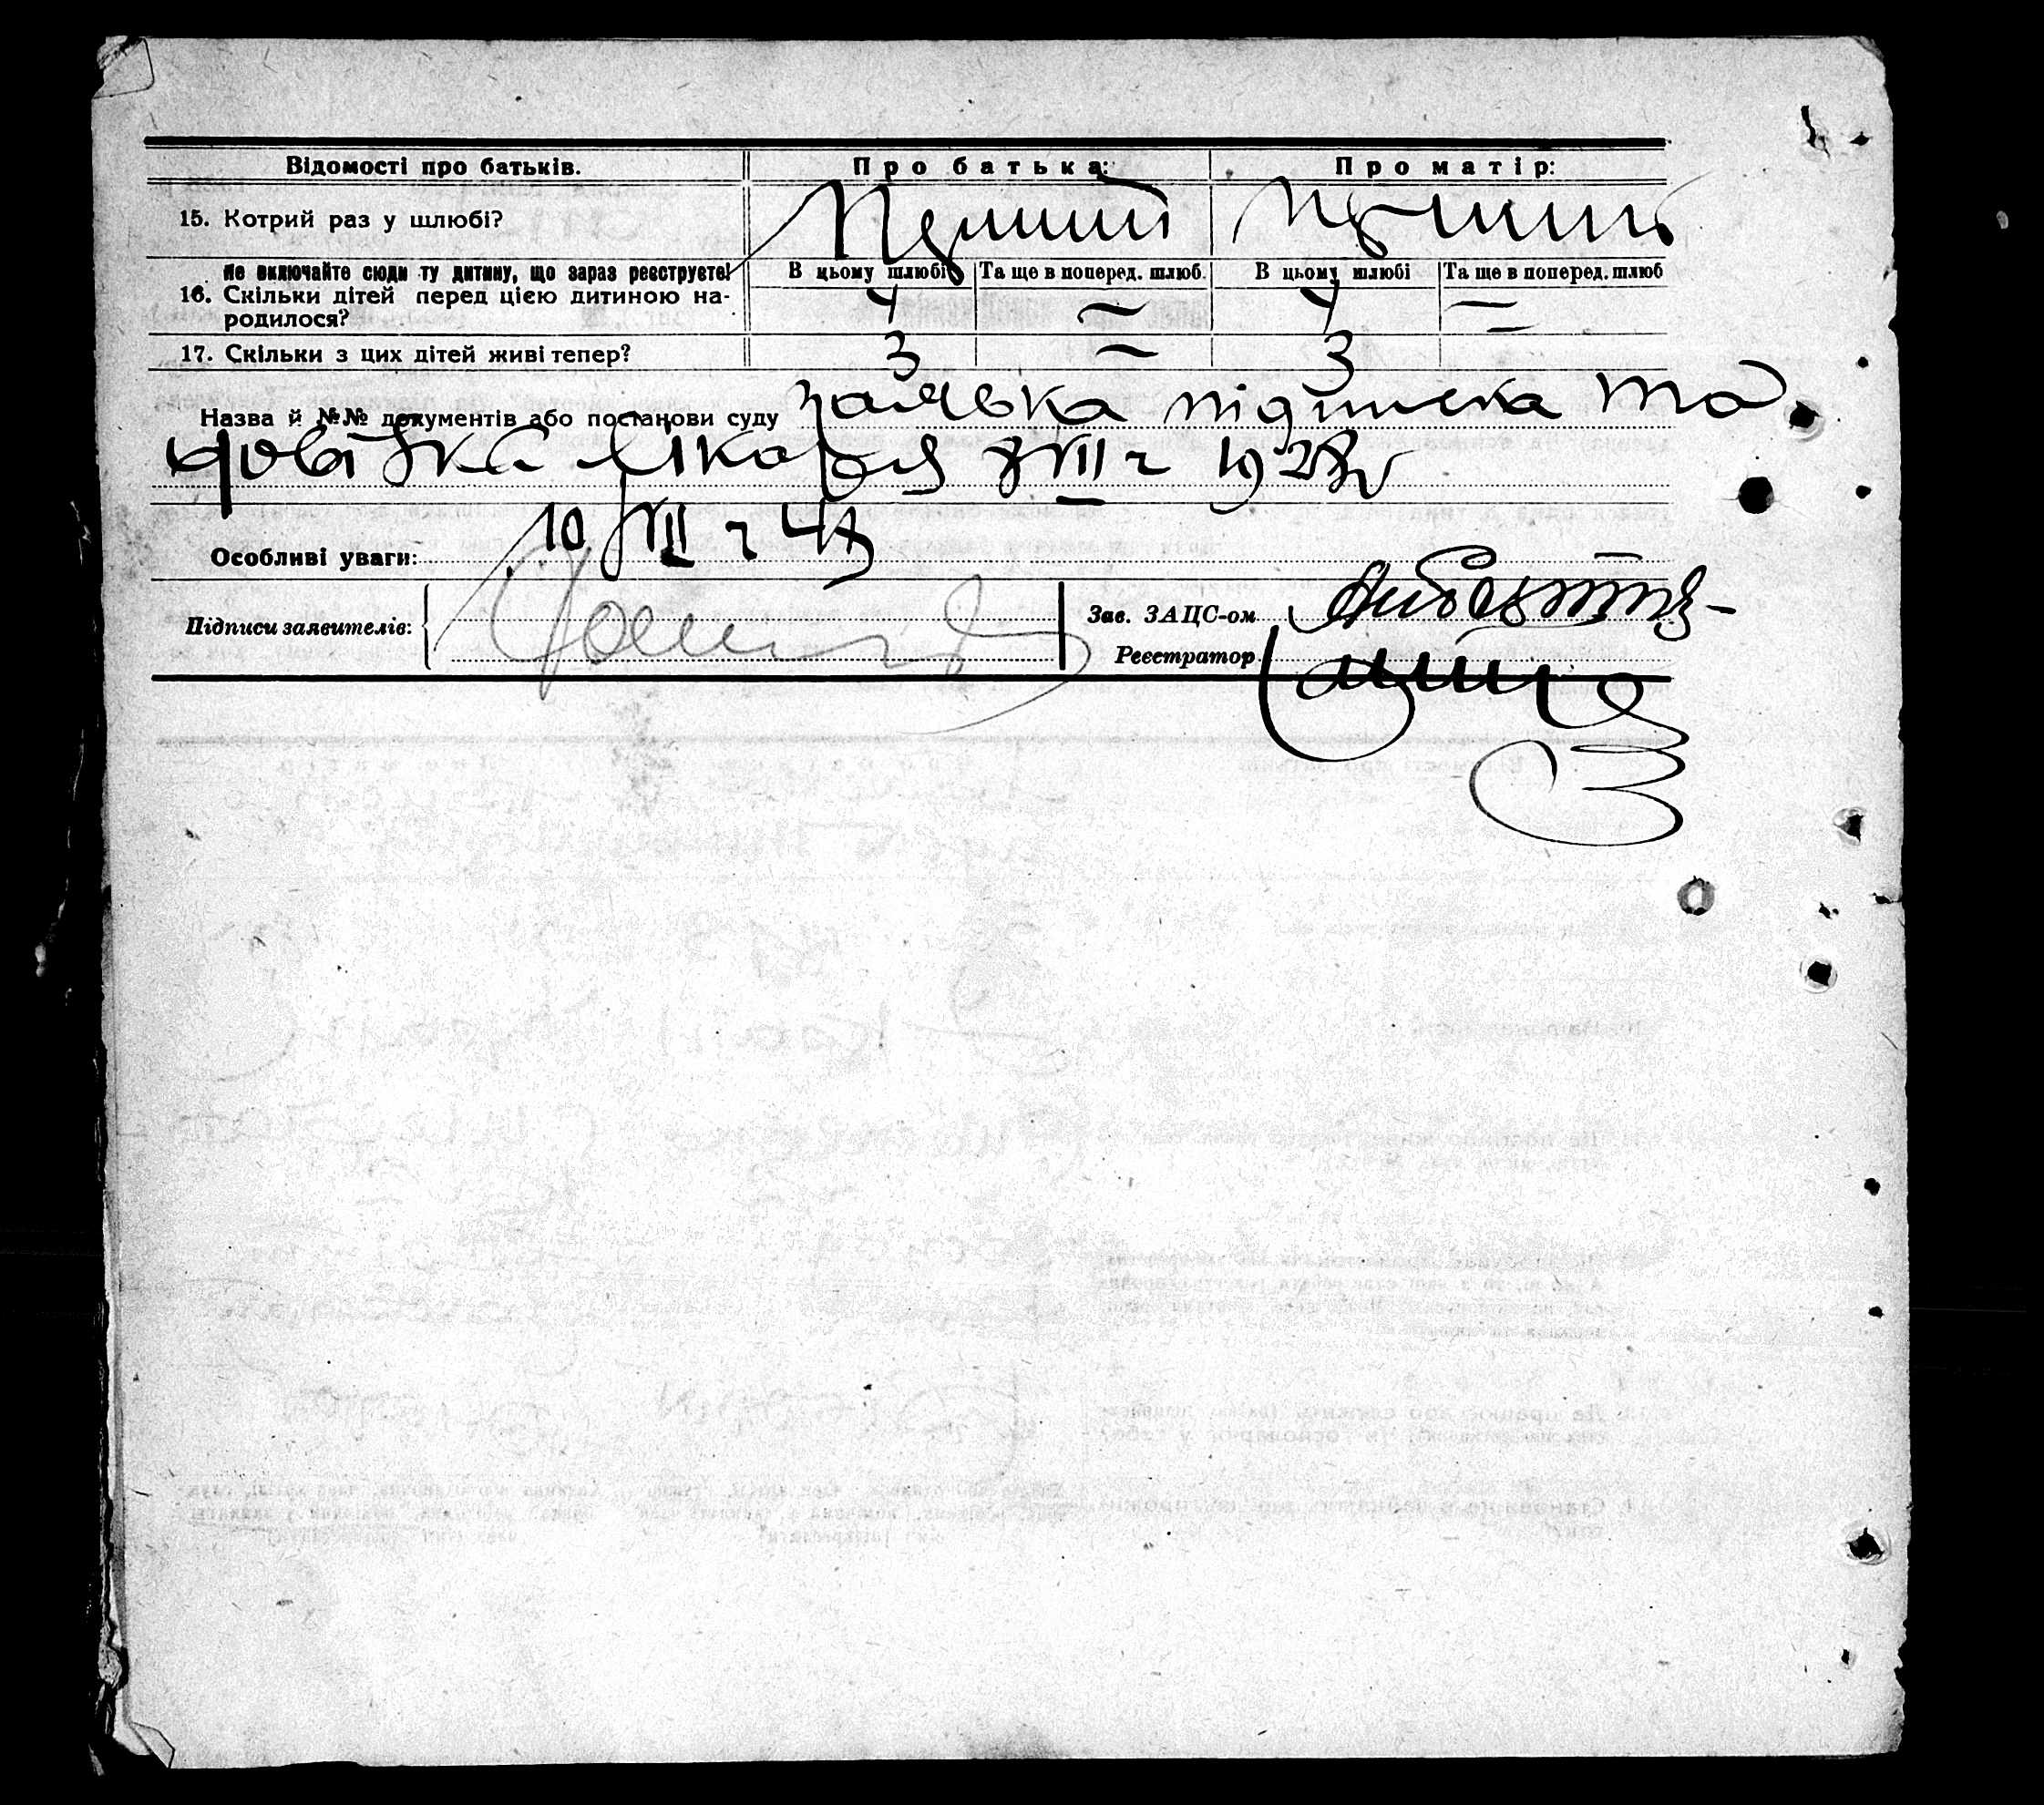 Відомості про батьків. Про батька: Про матір:
15. Котрий раз у шлюбі? Перший Перший
Не включайте сюди ту дитину, що зараз реєструєте! В цьому шлюбі Та ще в поперед. шлюб. В цьому шлюбі Та ще в поперед. шлюб
16. Скільки дітей перед цією дитиною на- 4 — 4 —
родилося?
17. Скільки з цих дітей живі тепер? 3 — 3 —
Назва й №№ документів або постанови суду заявка підписка та
довідка лікаря
Особливі уваги:
Підписи заявителів: Зав. ЗАЦС-ом
Реєстратор